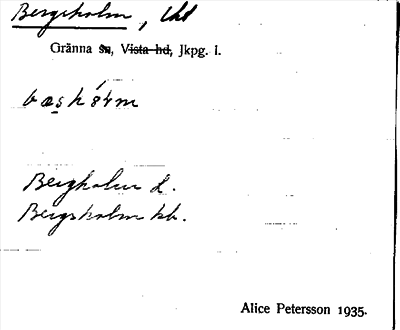 Bergsholm, lht
Gränna sn, Vista hd, Jkpg. l.
bæsḱǻɫm
Bergholm L.
Bergsholm kb.
Alice Petersson 1935.